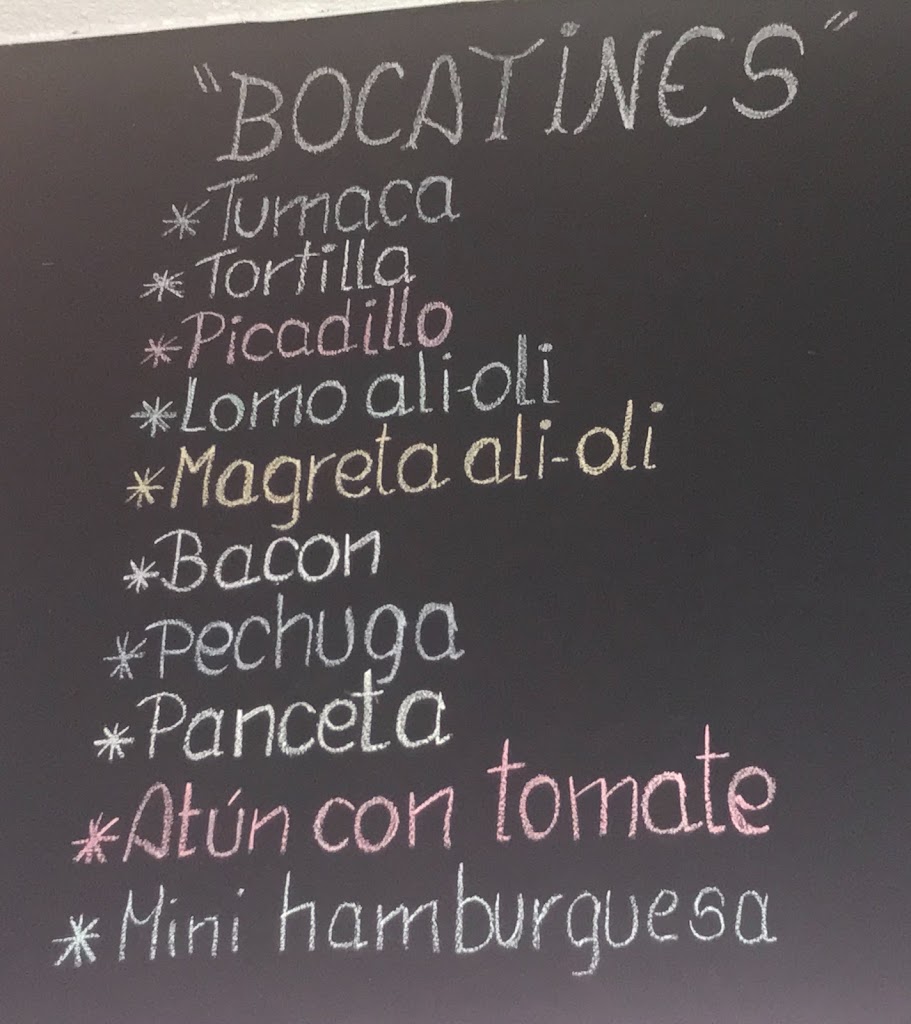 "BOCATINES"
*Tumaca
*Tortilla
*Picadillo
*Lomo ali-oli
*Magreta ali-oli
*Bacon
*Pechuga
*Panceta
*Atún con tomate
*Mini hamburguesa